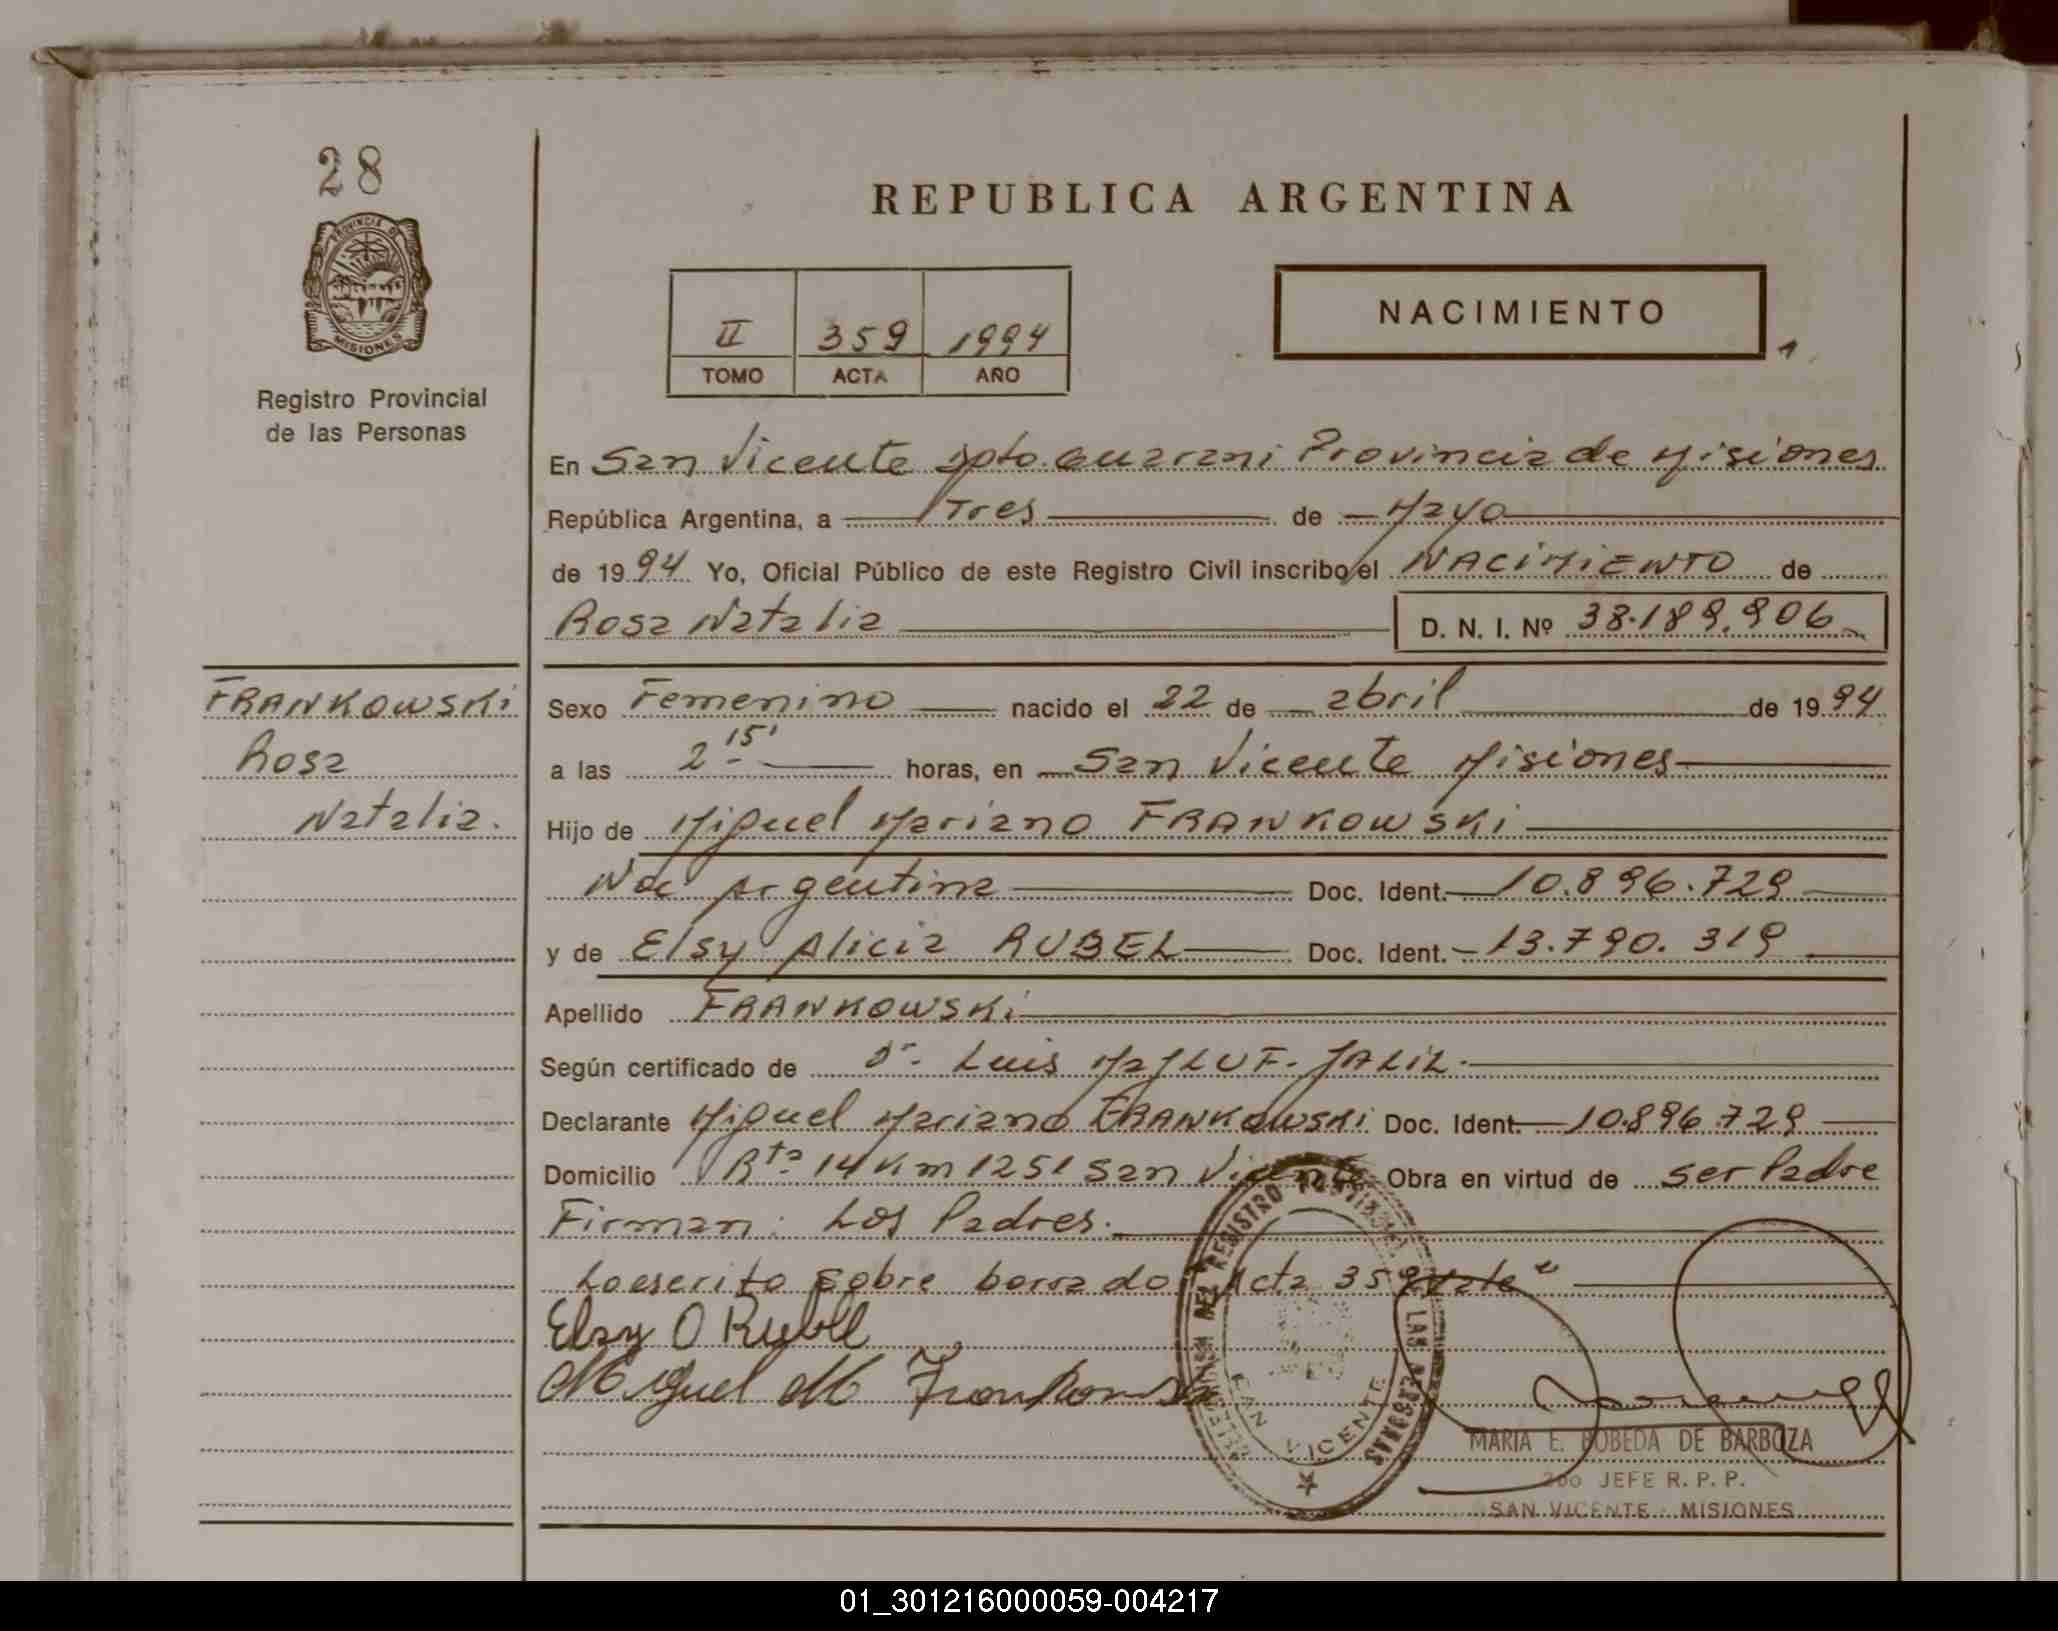 28
PROVINCIA DE
MISIONES
Registro Provincial
de las Personas
REPUBLICA ARGENTINA
II 359 1994
TOMO ACTA AÑO
NACIMIENTO
En San Vicente Dpto. Guarani Provincia de Misiones
República Argentina, a Tres de Mayo
de 1994 Yo, Oficial Público de este Registro Civil inscribo el NACIMIENTO de
Rosa Natalia D. N. I. Nº 38.189.906
FRANKOWSKI
Rosa
Natalia.
Sexo Femenino nacido el 22 de abril de 1994
a las 2 15' horas, en San Vicente Misiones
Hijo de Miguel Mariano FRANKOWSKI
Nac Argentina Doc. Ident. 10.896.729
y de Elsy Alicia RUBEL Doc. Ident. 13.790.319
Apellido FRANKOWSKI
Según certificado de Dr. Luis MaJLUF. JALIL.
Declarante Miguel Mariano FRANKOWSKI Doc. Ident. 10.896.729
Domicilio Rta 14 Km 1251 San Vicente Obra en virtud de ser Padre
Firman: Los Padres.
Lo escrito sobre borrado Acta 359 Vale"
Elsy O Rubel
Miguel M Frankowski
DEL REGISTRO DE LAS PERSONAS
SAN VICENTE
MARIA E. BOBEDA DE BARBOZA
2do JEFE R. P. P.
SAN VICENTE - MISIONES
01_301216000059-004217